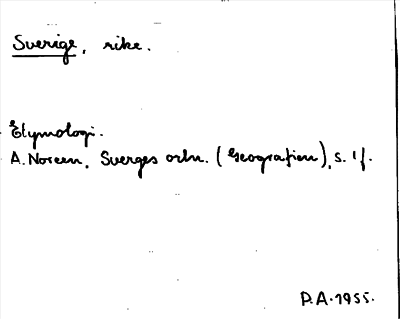 Sverige, rike.
Etymologi.
A. Noreen, Sverges ortn. (Geografien), s. 1 f.
P.A. 1955.